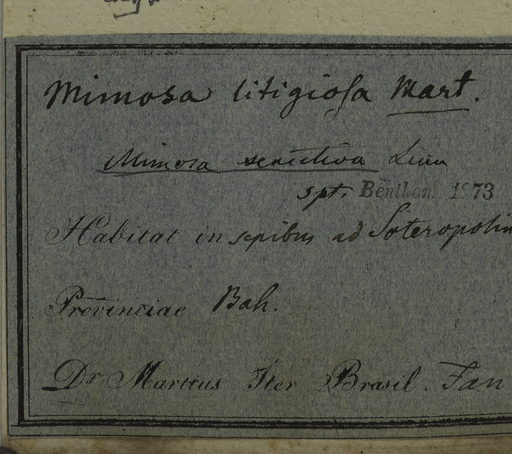 Mimosa litigiosa Mart.
Mimosa sensitiva Linn
spt. Bentham 1873
Habitat in sepibus ad Soteropolin
Provinciae Bah.
Dr. Martius Iter Brasil. Jan